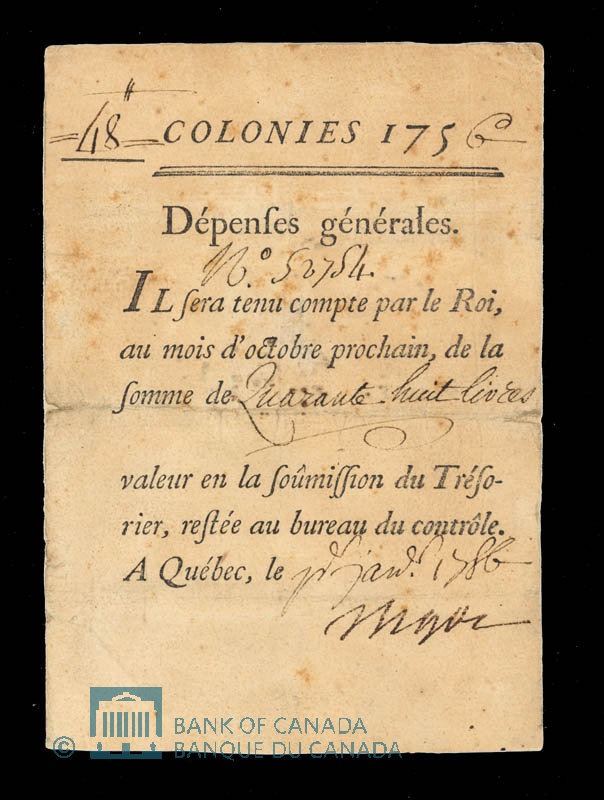 =48= COLONIES 1756
Dépenſes générales.
N.° 52754.
IL ſera tenu compte par le Roi,
au mois d'octobre prochain, de la
ſomme de Quarante huit livres
valeur en la ſoûmiſſion du Tréſo-
rier, reſtée au bureau du contrôle.
A Québec, le janv. 1756
© BANK OF CANADA
BANQUE DU CANADA